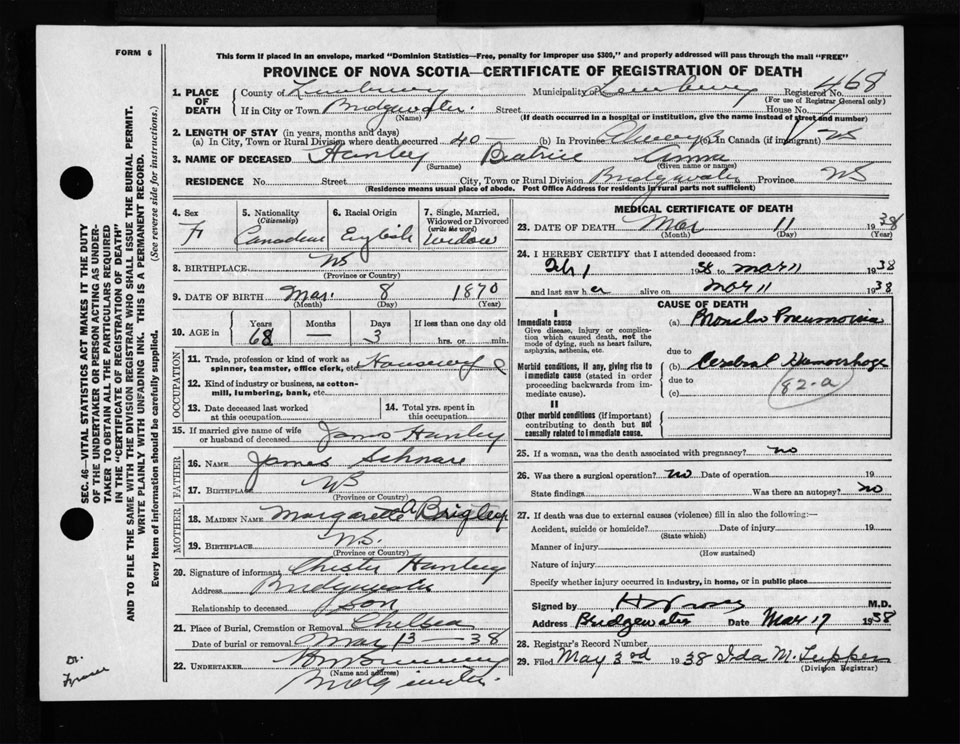 FORM 6
This form if placed in an envelope, marked "Dominion Statistics—Free, penalty for improper use $300," and properly addressed will pass through the mail "FREE"
PROVINCE OF NOVA SCOTIA—CERTIFICATE OF REGISTRATION OF DEATH
468
1. PLACE OF DEATH County of Lunenburg Municipality of Lunenburg Registered No.
(For use of Registrar General only)
If in City or Town Bridgewater Street House No.
(Name) (If death occurred in a hospital or institution, give the name instead of street and number)
2. LENGTH OF STAY (in years, months and days)
(a) In City, Town or Rural Division where death occurred 40 (b) In Province Always (c) In Canada (if immigrant) NS
3. NAME OF DECEASED Hanley Beatrice Anna
(Surname) (Given name or names)
RESIDENCE No. Street City, Town or Rural Division Bridgewater Province NS
(Residence means usual place of abode. Post Office Address for residents in rural parts not sufficient)
4. Sex F
5. Nationality (Citizenship) Canadian
6. Racial Origin English
7. Single, Married, Widowed or Divorced (write the word) Widow
8. BIRTHPLACE NS
(Province or Country)
9. DATE OF BIRTH Mar. 8 1870
(Month) (Day) (Year)
10. AGE in Years 68 Months — Days 3 If less than one day old hrs. or min.
OCCUPATION
11. Trade, profession or kind of work as spinner, teamster, office clerk, etc. Housewife
12. Kind of industry or business, as cotton-mill, lumbering, bank, etc.
13. Date deceased last worked at this occupation
14. Total yrs. spent in this occupation
15. If married give name of wife or husband of deceased James Hanley
FATHER
16. NAME James Schnare
17. BIRTHPLACE NS
(Province or Country)
MOTHER
18. MAIDEN NAME Margarette A
19. BIRTHPLACE NS.
(Province or Country)
20. Signature of informant Chester Hanley
Address Bridgewater
Relationship to deceased Son
21. Place of Burial, Cremation or Removal Chelsea
Date of burial or removal Mar 13 — 38
22. UNDERTAKER
(Name and address)
Bridgewater
MEDICAL CERTIFICATE OF DEATH
23. DATE OF DEATH Mar 11 1938
(Month) (Day) (Year)
24. I HEREBY CERTIFY that I attended deceased from:
Feb 1 1938 to mar 11 1938
and last saw her alive on Mar 11 1938
CAUSE OF DEATH
I
Immediate cause
Give disease, injury or complication which caused death, not the mode of dying, such as heart failure, asphyxia, asthenia, etc.
(a) Broncho Pneumonia
due to
Morbid conditions, if any, giving rise to immediate cause (stated in order proceeding backwards from immediate cause).
(b) Cerebral Hemorrhage
due to
(c)
82-a
II
Other morbid conditions (if important) contributing to death but not causally related to immediate cause.
25. If a woman, was the death associated with pregnancy? no
26. Was there a surgical operation? no Date of operation 19
State findings Was there an autopsy? no
27. If death was due to external causes (violence) fill in also the following:—
Accident, suicide or homicide? Date of injury 19
(State which)
Manner of injury
(How sustained)
Nature of injury
Specify whether injury occurred in industry, in home, or in public place
Signed by M.D.
Address Bridgewater Date Mar 17 1938
28. Registrar's Record Number
29. Filed May 3rd 1938 Ida M. Tupper
(Division Registrar)
SEC. 46—VITAL STATISTICS ACT MAKES IT THE DUTY
OF THE UNDERTAKER OR PERSON ACTING AS UNDER-
TAKER TO OBTAIN ALL THE PARTICULARS REQUIRED
IN THE "CERTIFICATE OF REGISTRATION OF DEATH"
AND TO FILE THE SAME WITH THE DIVISION REGISTRAR WHO SHALL ISSUE THE BURIAL PERMIT.
WRITE PLAINLY WITH UNFADING INK. THIS IS A PERMANENT RECORD.
Every item of information should be carefully supplied. (See reverse side for instructions.)
Dr.